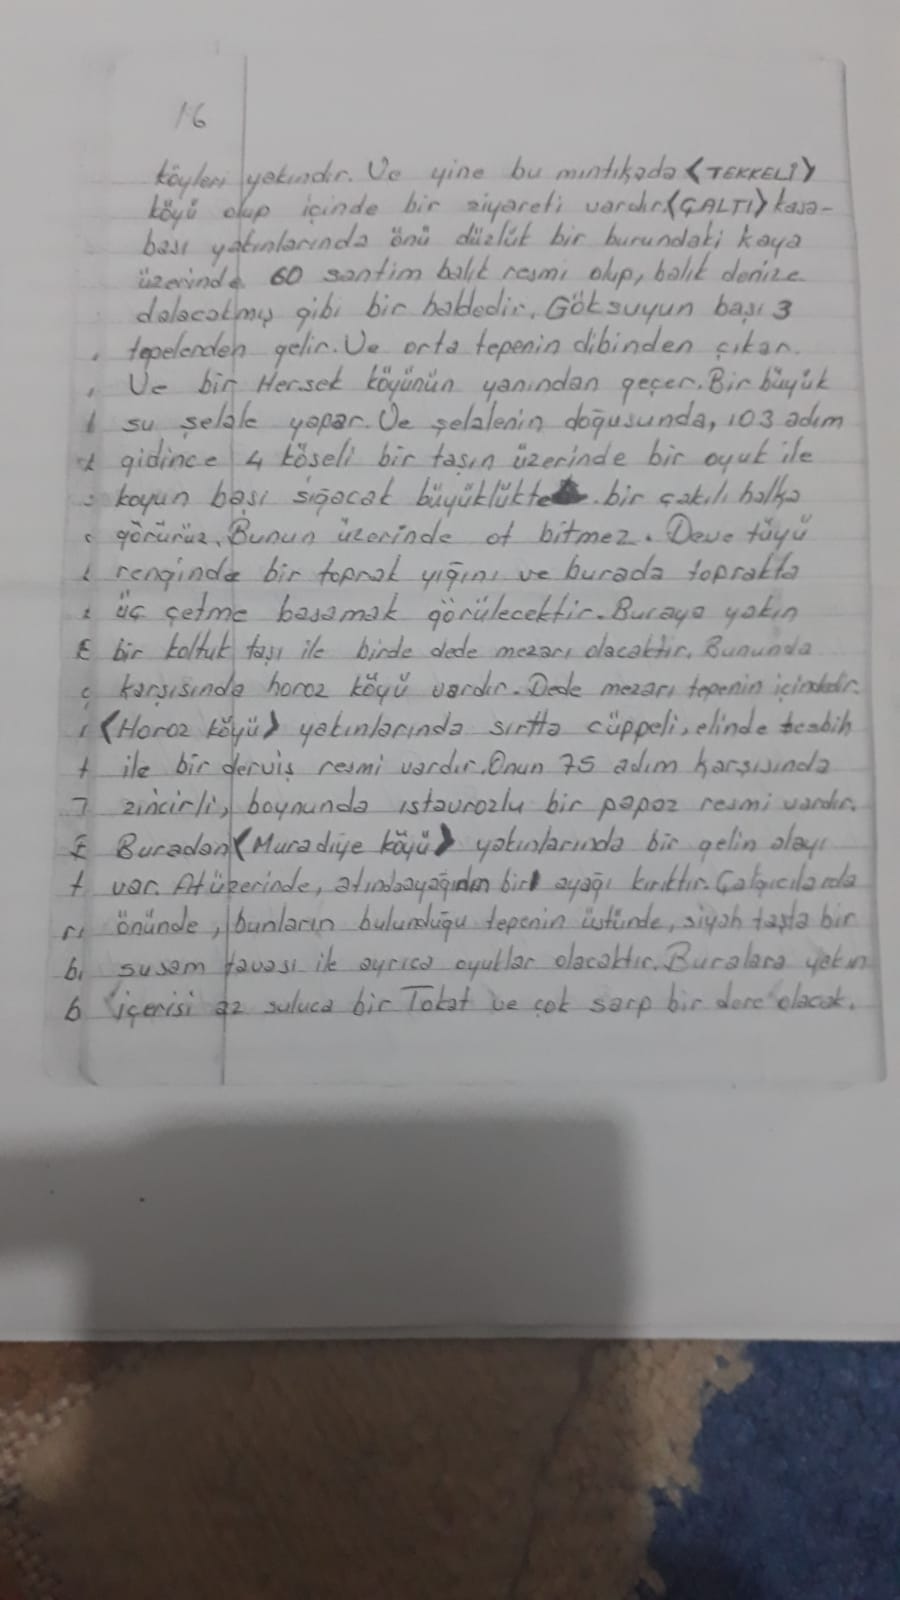 16
köyleri yakındır. Ve yine bu mıntıkada (TEKKELİ)
köyü olup içinde bir ziyareti vardır. (ÇALTI) kasa-
bası yakınlarında önü düzlük bir burundaki kaya
üzerinde 60 santim balık resmi olup, balık denize
dalacakmış gibi bir haldedir. Göksuyun başı 3
tepelerden gelir. Ve orta tepenin dibinden çıkar.
Ve bir Hersek köyünün yanından geçer. Bir büyük
su şelale yapar. Ve şelalenin doğusunda, 103 adım
gidince 4 köşeli bir taşın üzerinde bir oyuk ile
koyun başı sığacak büyüklükte bir çakılı halka
görürüz. Bunun üzerinde ot bitmez. Deve tüyü
renginde bir toprak yığını ve burada toprakta
üç çetme basamak görülecektir. Buraya yakın
bir koltuk taşı ile birde dede mezarı olacaktır. Bununda
karşısında horoz köyü vardır. Dede mezarı tepenin içindedir.
(Horoz köyü) yakınlarında sırtta cüppeli, elinde tesbih
ile bir derviş resmi vardır. Onun 75 adım karşısında
zincirli, boynunda istavrozlu bir papaz resmi vardır.
Buradan (Muradiye köyü) yakınlarında bir gelin alayı
var. At üzerinde, atında ayağından bir ayağı kırıktır. Çalgıcılarda
önünde, bunların bulunduğu tepenin üstünde, siyah taşta bir
susam tavası ile ayrıca oyuklar olacaktır. Buralara yakın
içerisi az suluca bir Tokat ve çok sarp bir dere olacak.